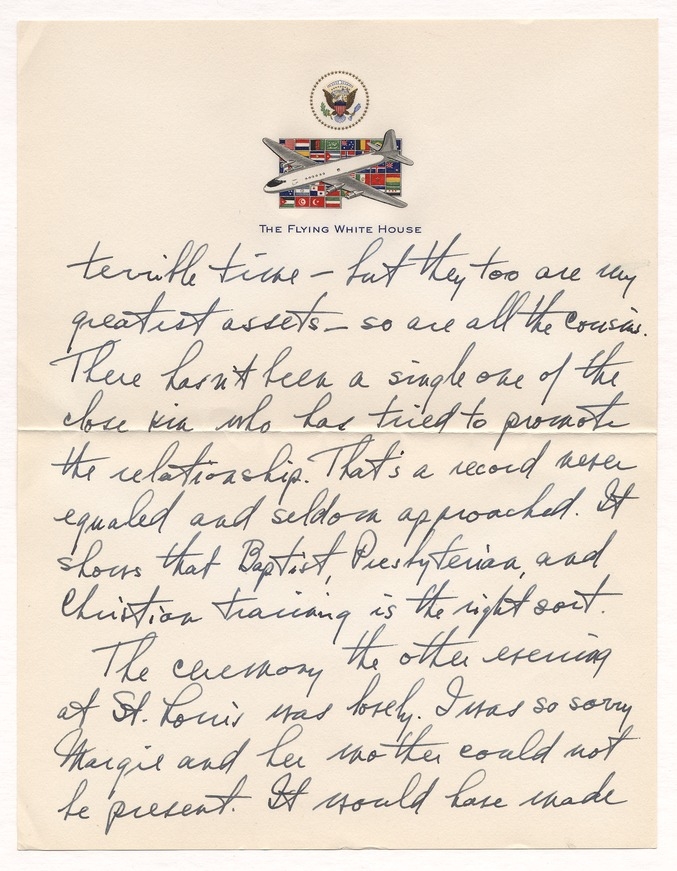 THE FLYING WHITE HOUSE
terrible time – but they too are my
greatest assets – so are all the cousins.
There hasn't been a single one of the
close kin who has tried to promote
the relationship. That's a record never
equaled and seldom approached. It
shows that Baptist, Presbyterian, and
Christian training is the right sort.
The ceremony the other evening
at St. Louis was lovely. I was so sorry
Margie and her mother could not
be present. It would have made